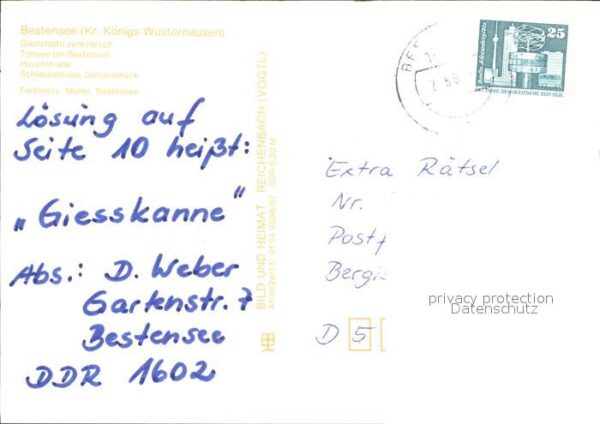 Bestensee (Kr. Königs Wusterhausen)
Gaststätte zum Hirsch
Tonsee bei Bestensee
Hauptstraße
Schleusenhaus Gallunsbrück
Farbfotos: Müller, Bestensee
Lösung auf
Seite 10 heißt:
„Giesskanne"
Abs.: D. Weber
Gartenstr. 7
Bestensee
DDR 1602
BILD UND HEIMAT REICHENBACH (VOGTL)
DDR 0,20 M
25
DEUTSCHE DEMOKRATISCHE REPUBLIK
BES
Extra Rätsel
Nr.
Postf
Bergis
D 5
privacy protection
Datenschutz